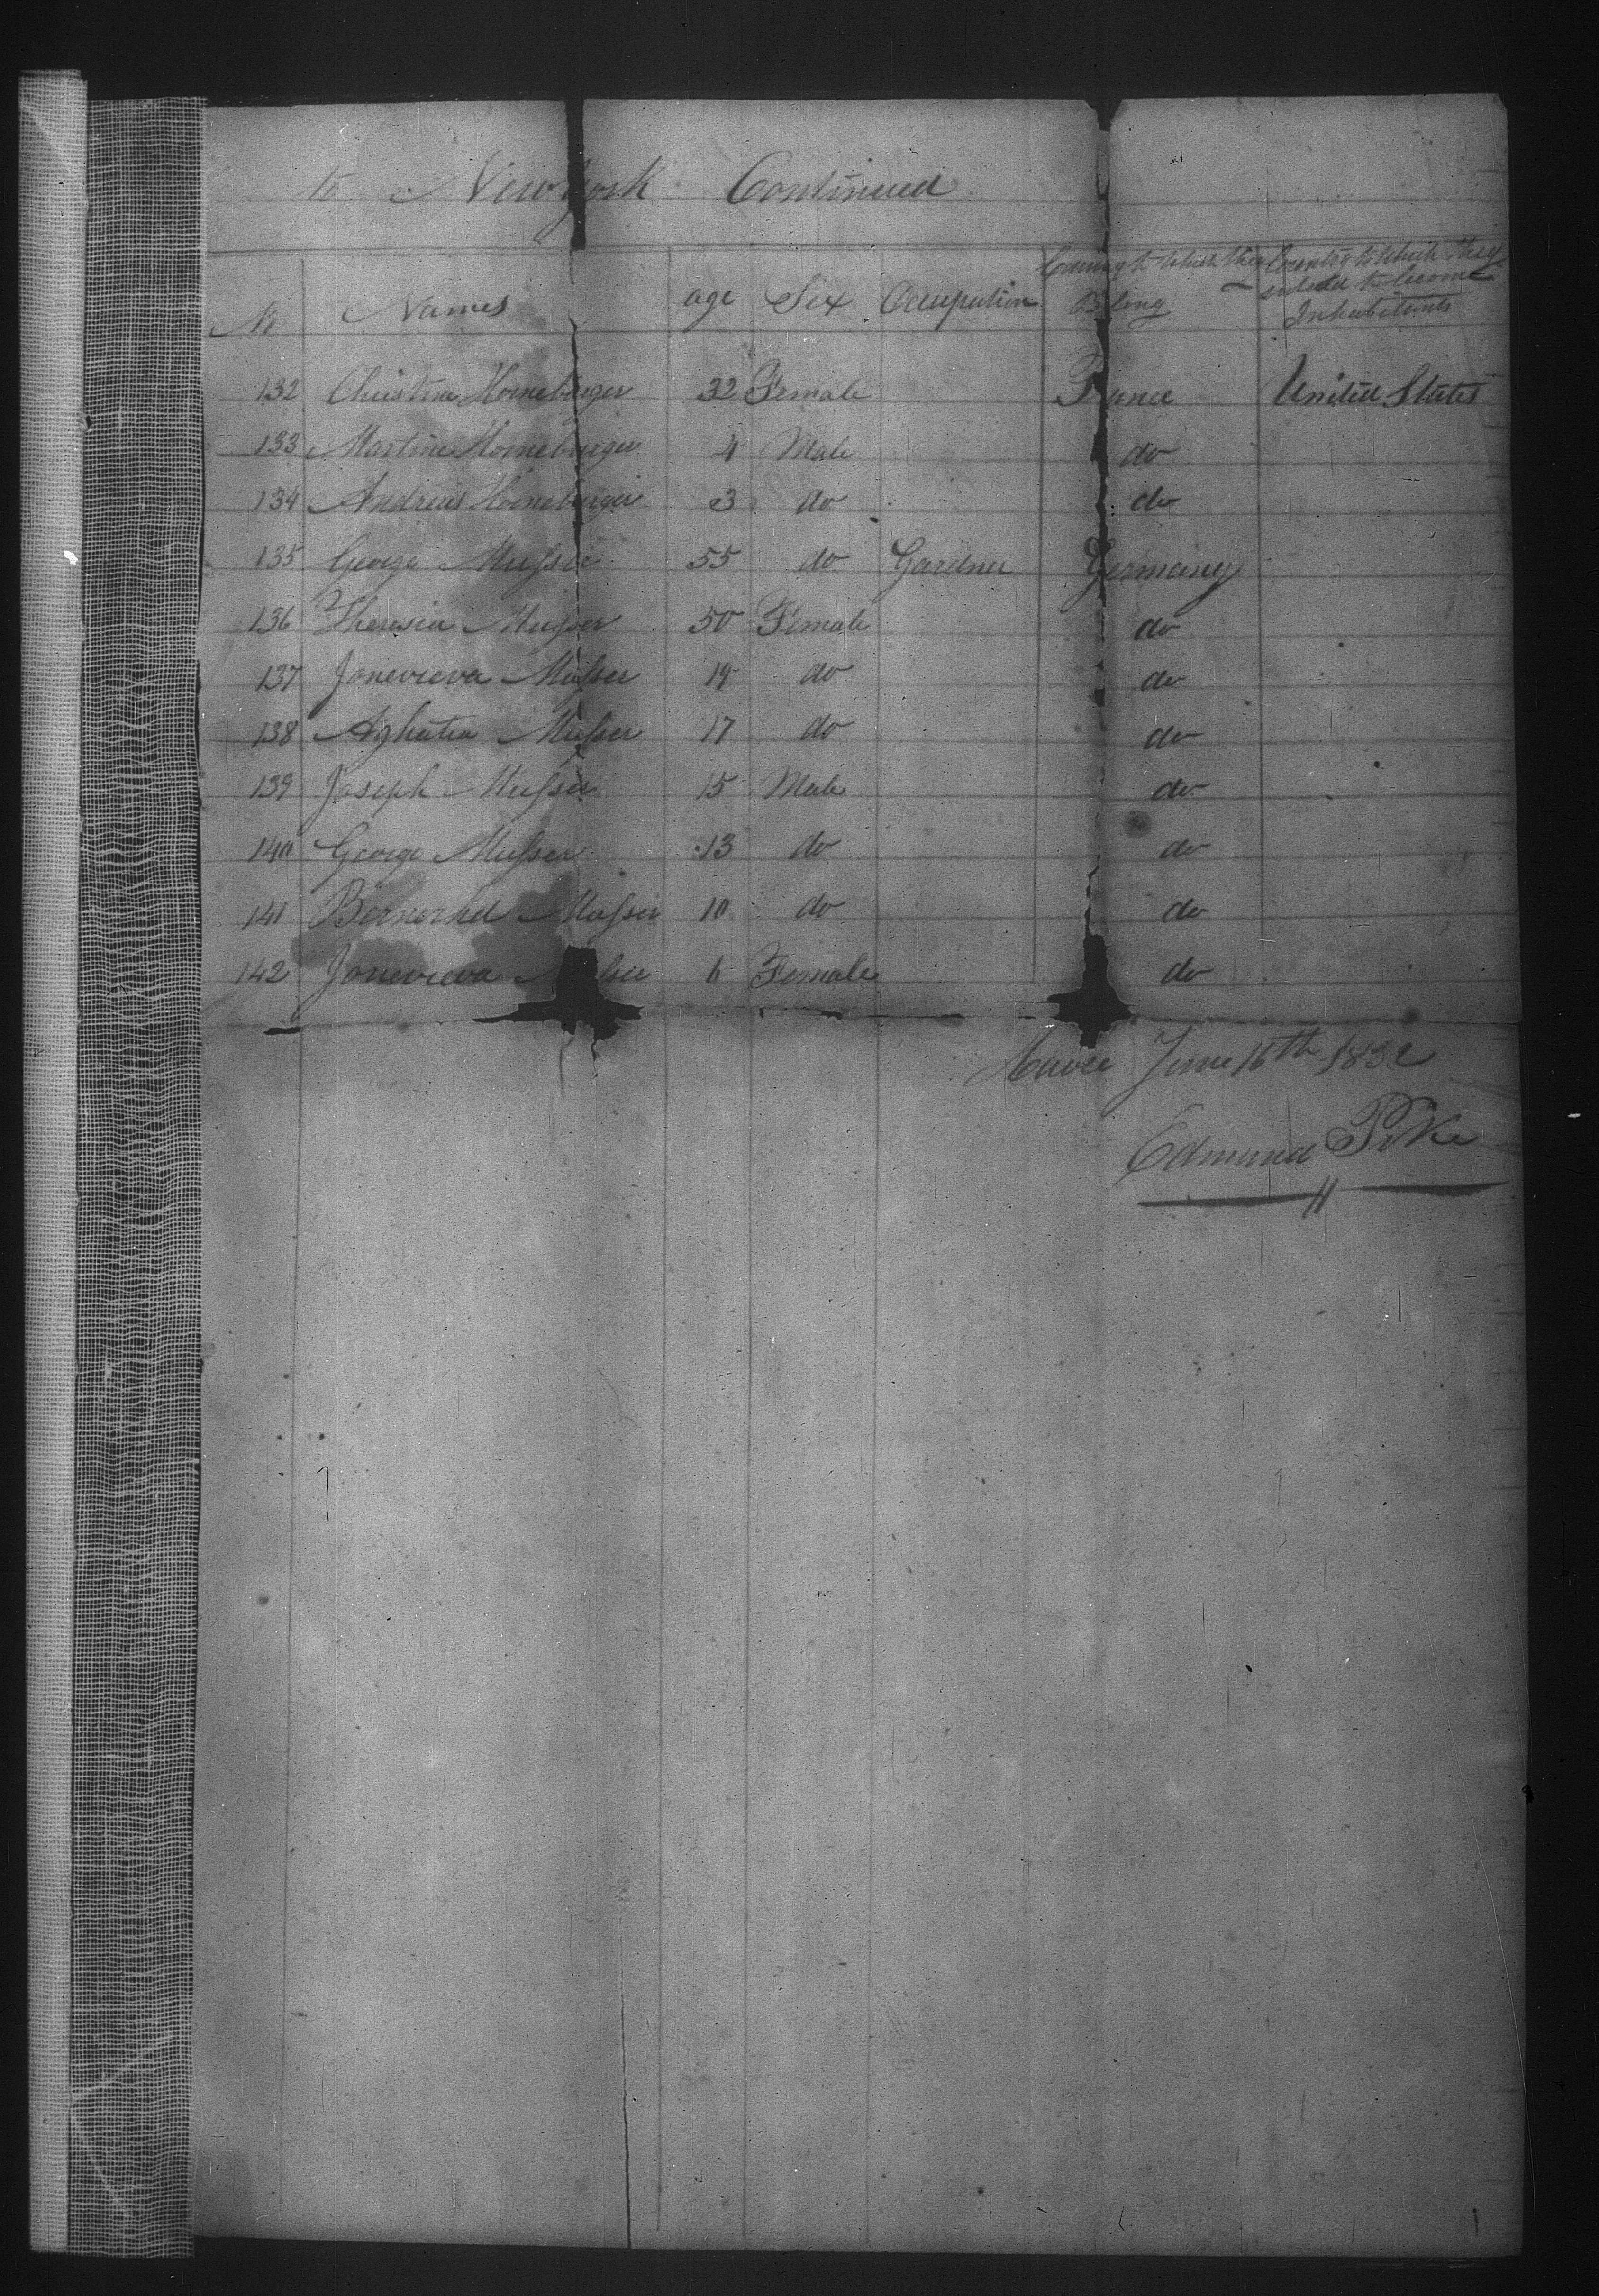 to New York Continued
No Names age Sex Occupation Country to which they Belong Country to which they intend to become Inhabitants
132 Christine Horneburger 32 Female France United States
133 Martine Horneburger 4 Male do
134 Andreas Horneburger 3 do do
135 George Musser 55 do Gardner Germany
136 Theresia Musser 50 Female do
137 Jonevieva Musser 19 do do
138 Aghatia Musser 17 do do
139 Joseph Musser 15 Male do
140 George Musser 13 do do
141 Bernerhd Musser 10 do do
142 Jonevieva Musser 6 Female do
Havre June 16th 1832
Edmund Pike